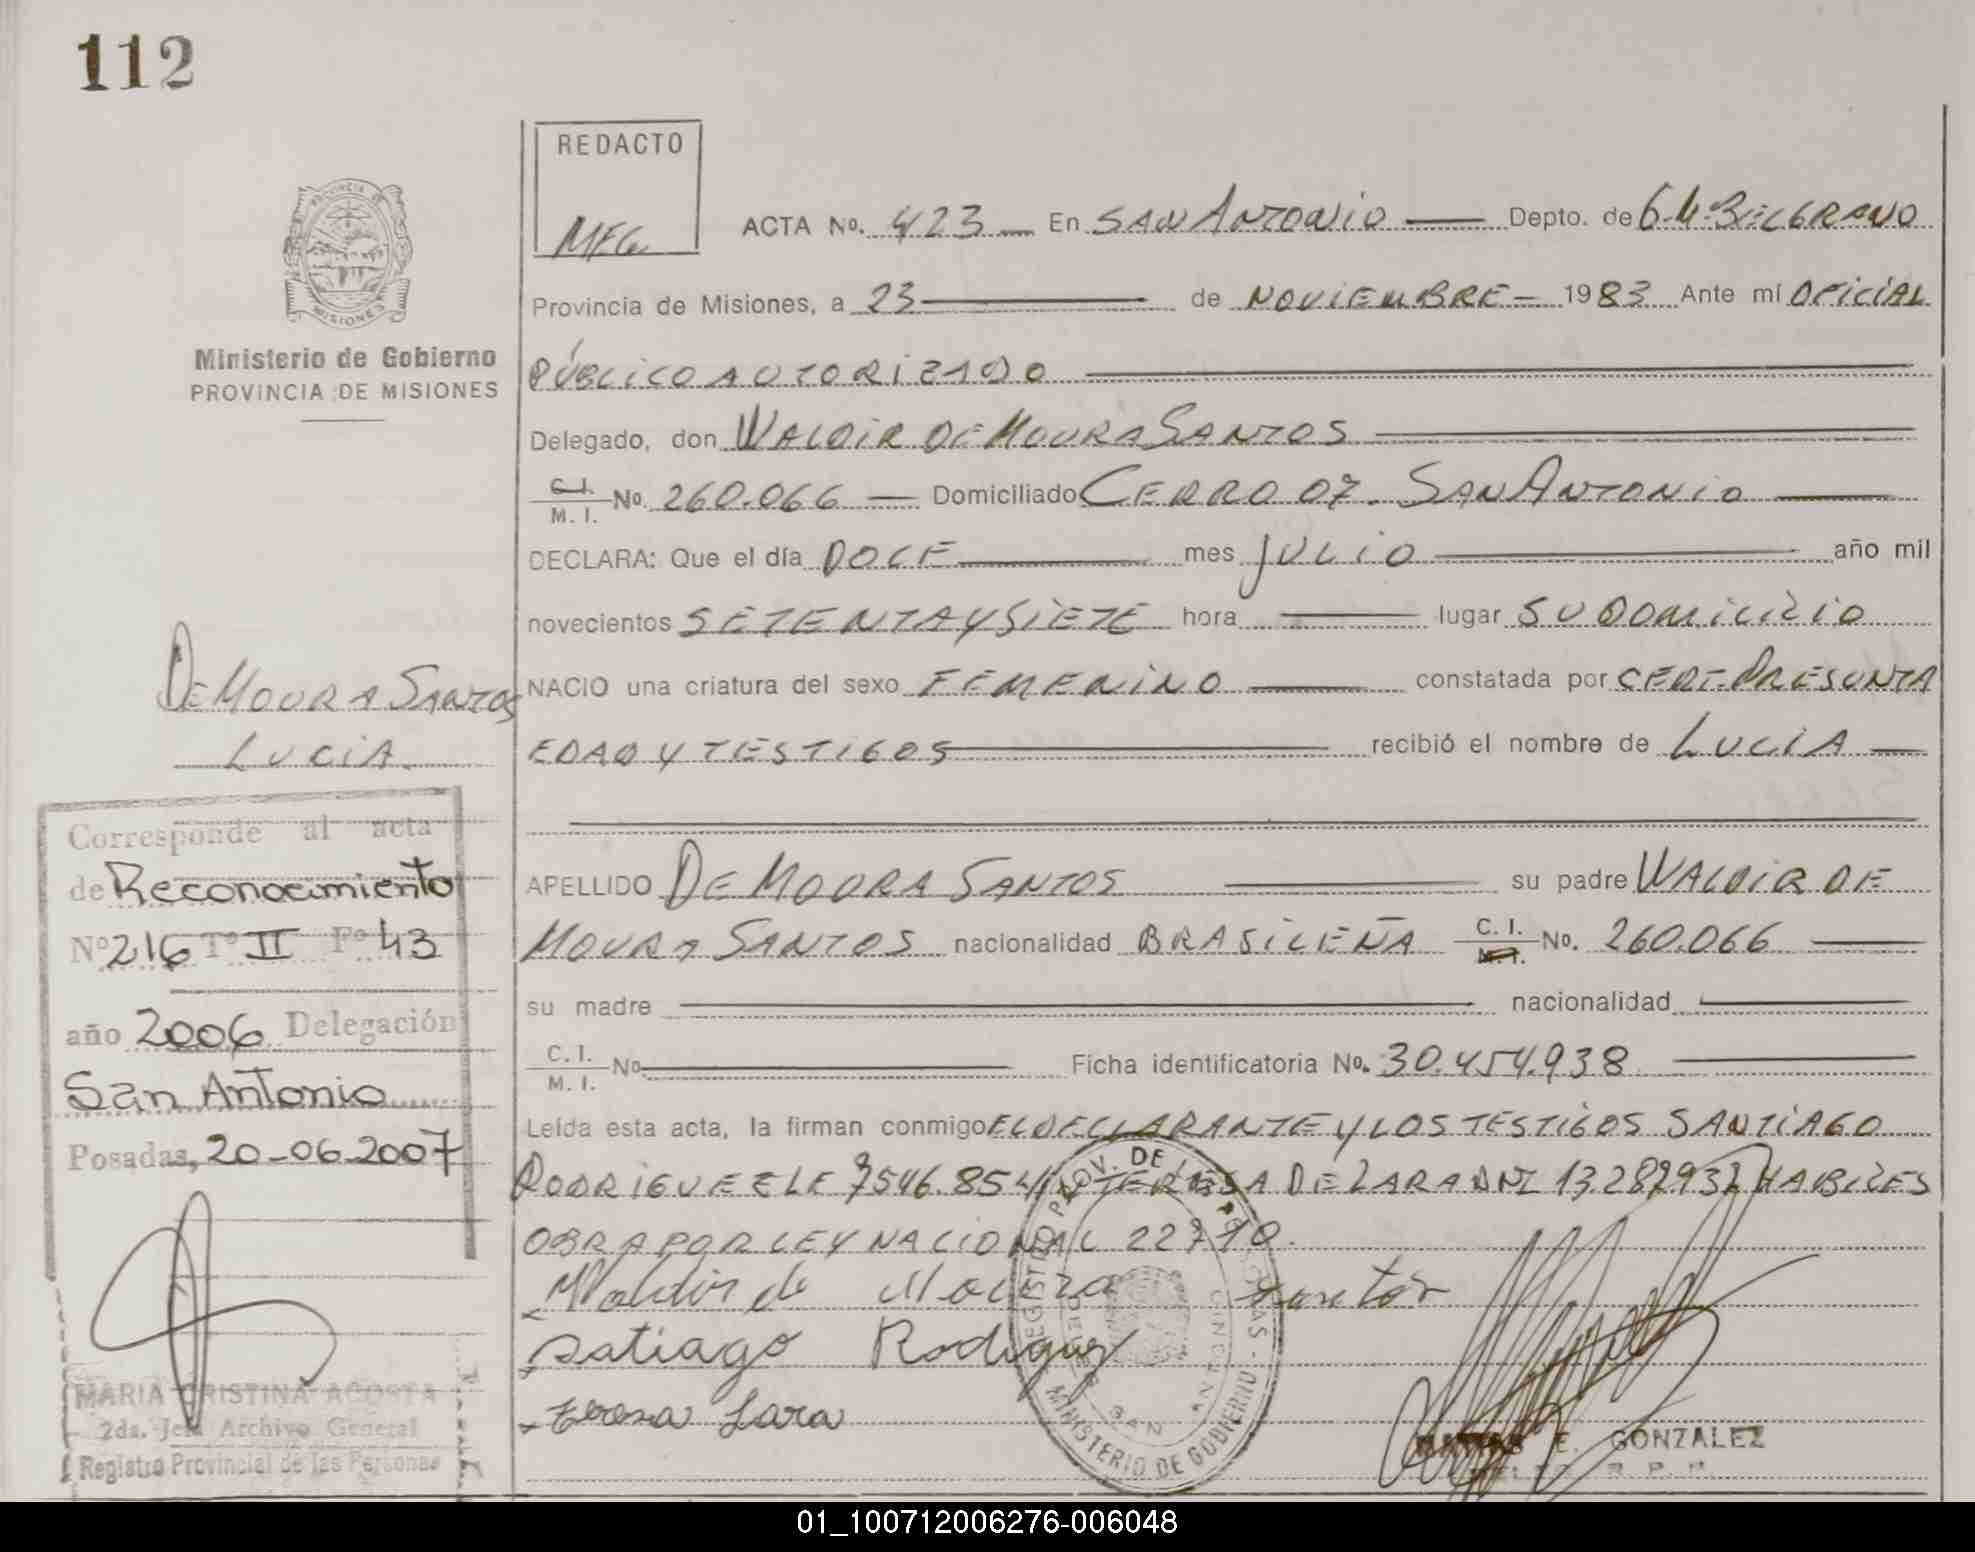 112
REDACTO
MEG
PROVINCIA DE
MISIONES
Ministerio de Gobierno
PROVINCIA DE MISIONES
ACTA No. 423 En SAN ANTONIO Depto. de G.M. BELGRANO
Provincia de Misiones, a 23 de NOVIEMBRE 1983 Ante mí OFICIAL
PÚBLICO AUTORIZADO
Delegado, don WALDIR DE MOURA SANTOS
C.I. M. I. No. 260.066 Domiciliado CERRO 07. SAN ANTONIO
DECLARA: Que el día DOCE mes JULIO año mil
novecientos SETENTA Y SIETE hora lugar SU DOMICILIO
NACIO una criatura del sexo FEMENINO constatada por CERT. PRESUNTA
EDAD Y TESTIGOS recibió el nombre de LUCIA
APELLIDO DE MOURA SANTOS su padre WALDIR DE
MOURA SANTOS nacionalidad BRASILEÑA C. I. M. I. No. 260.066
su madre nacionalidad
C. I. M. I. No Ficha identificatoria No. 30.454.938
Leída esta acta, la firman conmigo EL DECLARANTE Y LOS TESTIGOS SANTIAGO
RODRIGUEZ LE 7546.854 TERESA DE LARA DNI 13.282932 HABILES
OBRA POR LEY NACIONAL 22710.
Waldir de Moura Santos
Satiago Rodiguz
teresa Lara
REGISTRO PROV. DE LAS PERSONAS - MINISTERIO DE GOBIERNO
SAN ANTONIO
E. GONZALEZ
DE MOURA SANTOS
LUCIA.
Corresponde al acta
de Reconocimiento
Nº 216 Tº II Fº 43
año 2006 Delegación
San Antonio
Posadas, 20-06-2007
MARIA CRISTINA ACOSTA
2da. Jefa Archivo General
Registro Provincial de las Personas
01_100712006276-006048